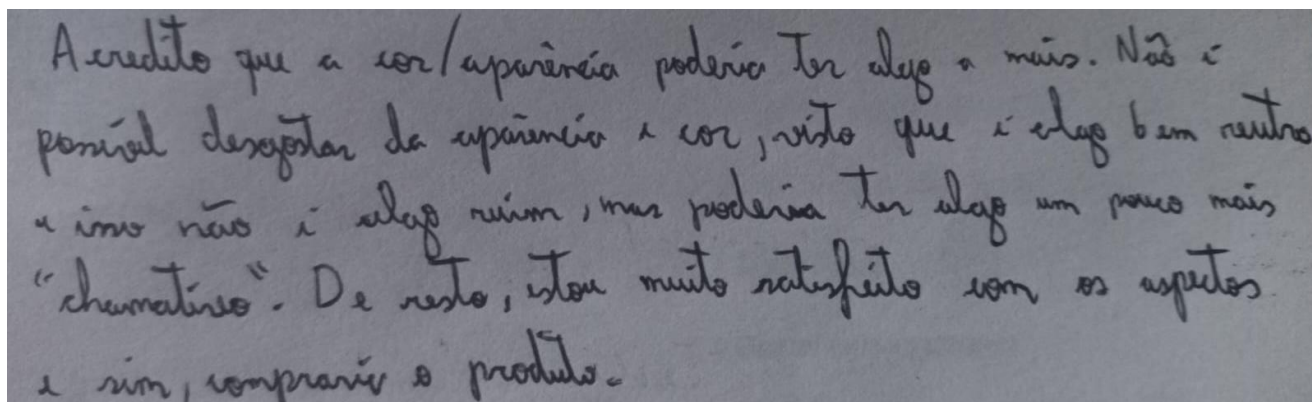 Acredito que a cor/aparência poderia ter algo a mais. Não é
possível desgostar da aparência e cor, visto que é algo bem neutro
e isso não é algo ruim, mas poderia ter algo um pouco mais
"chamativo". De resto, estou muito satisfeito com os aspectos
e sim, compraria o produto.